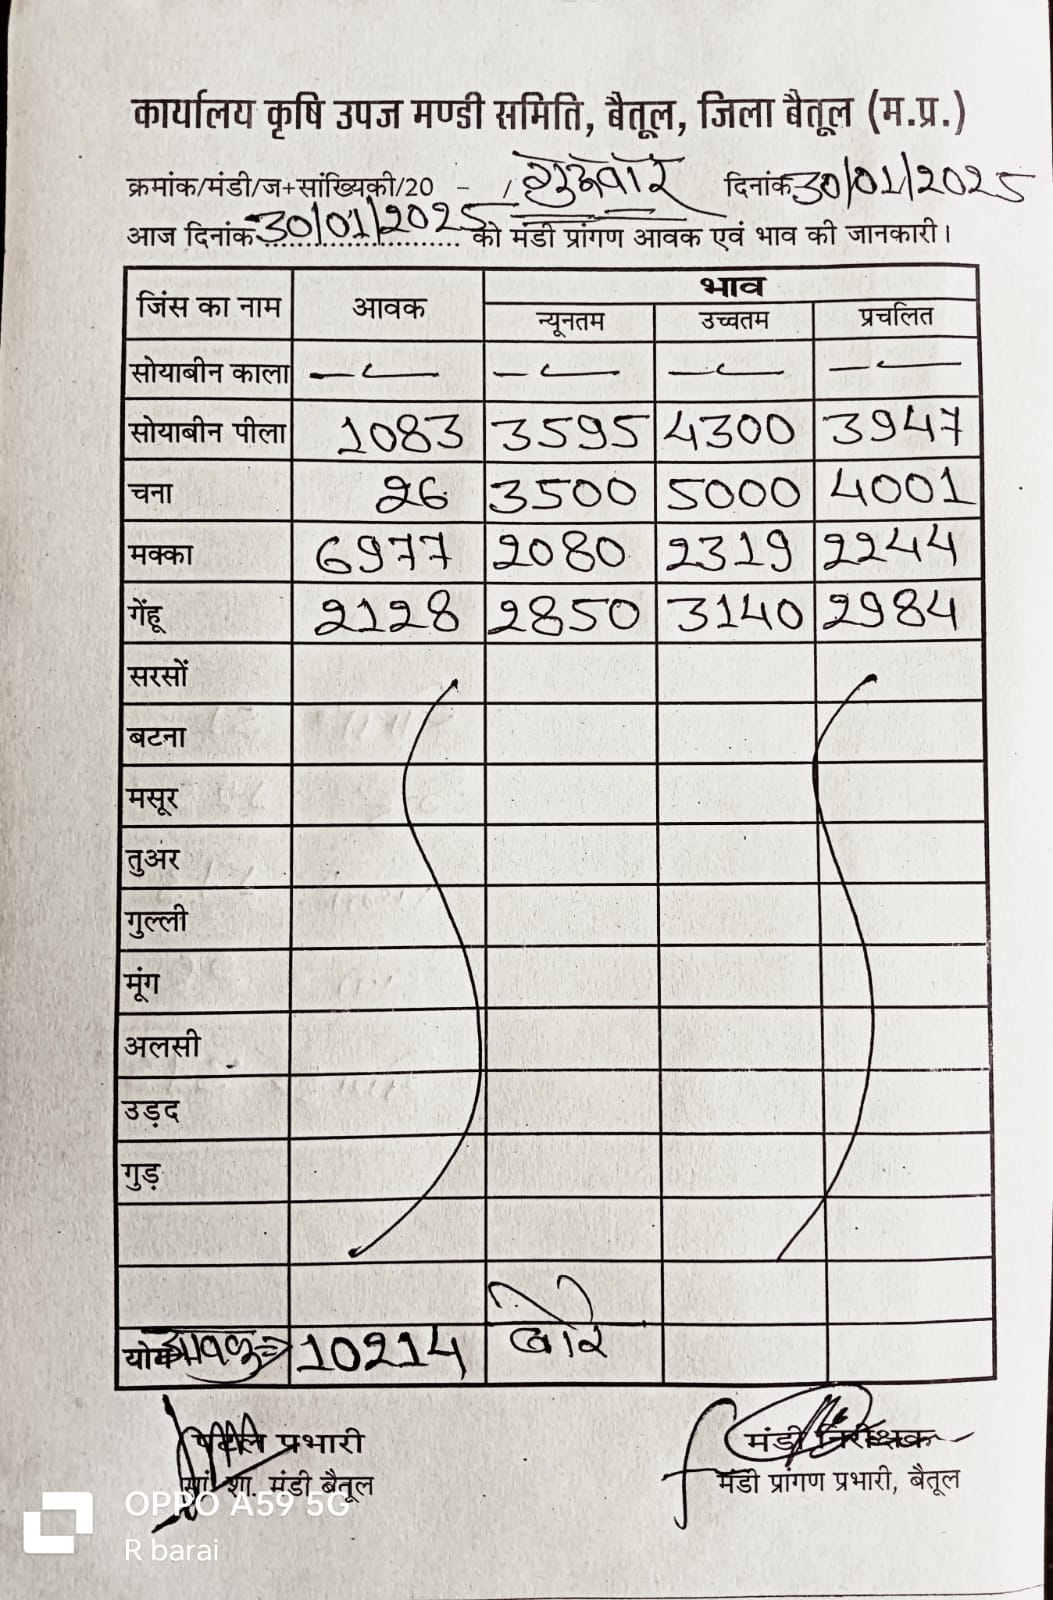 कार्यालय कृषि उपज मण्डी समिति, बैतूल, जिला बैतूल (म.प्र.)
क्रमांक/मंडी/ज+सांख्यिकी/20 - / गुरूवार दिनांक 30/01/2025
आज दिनांक 30/01/2025 को मंडी प्रांगण आवक एवं भाव की जानकारी।
जिंस का नाम आवक भाव
न्यूनतम उच्चतम प्रचलित
सोयाबीन काला — — — —
सोयाबीन पीला 1083 3595 4300 3947
चना 26 3500 5000 4001
मक्का 6977 2080 2319 2244
गेंहू 2128 2850 3140 2984
सरसों
बटना
मसूर
तुअर
गुल्ली
मूंग
अलसी
उड़द
गुड़
योग आवक 10214 बोरे
प्रभारी मंडी निरीक्षक
सां. शा. मंडी बैतूल मंडी प्रांगण प्रभारी, बैतूल
OPPO A59 5G
R barai